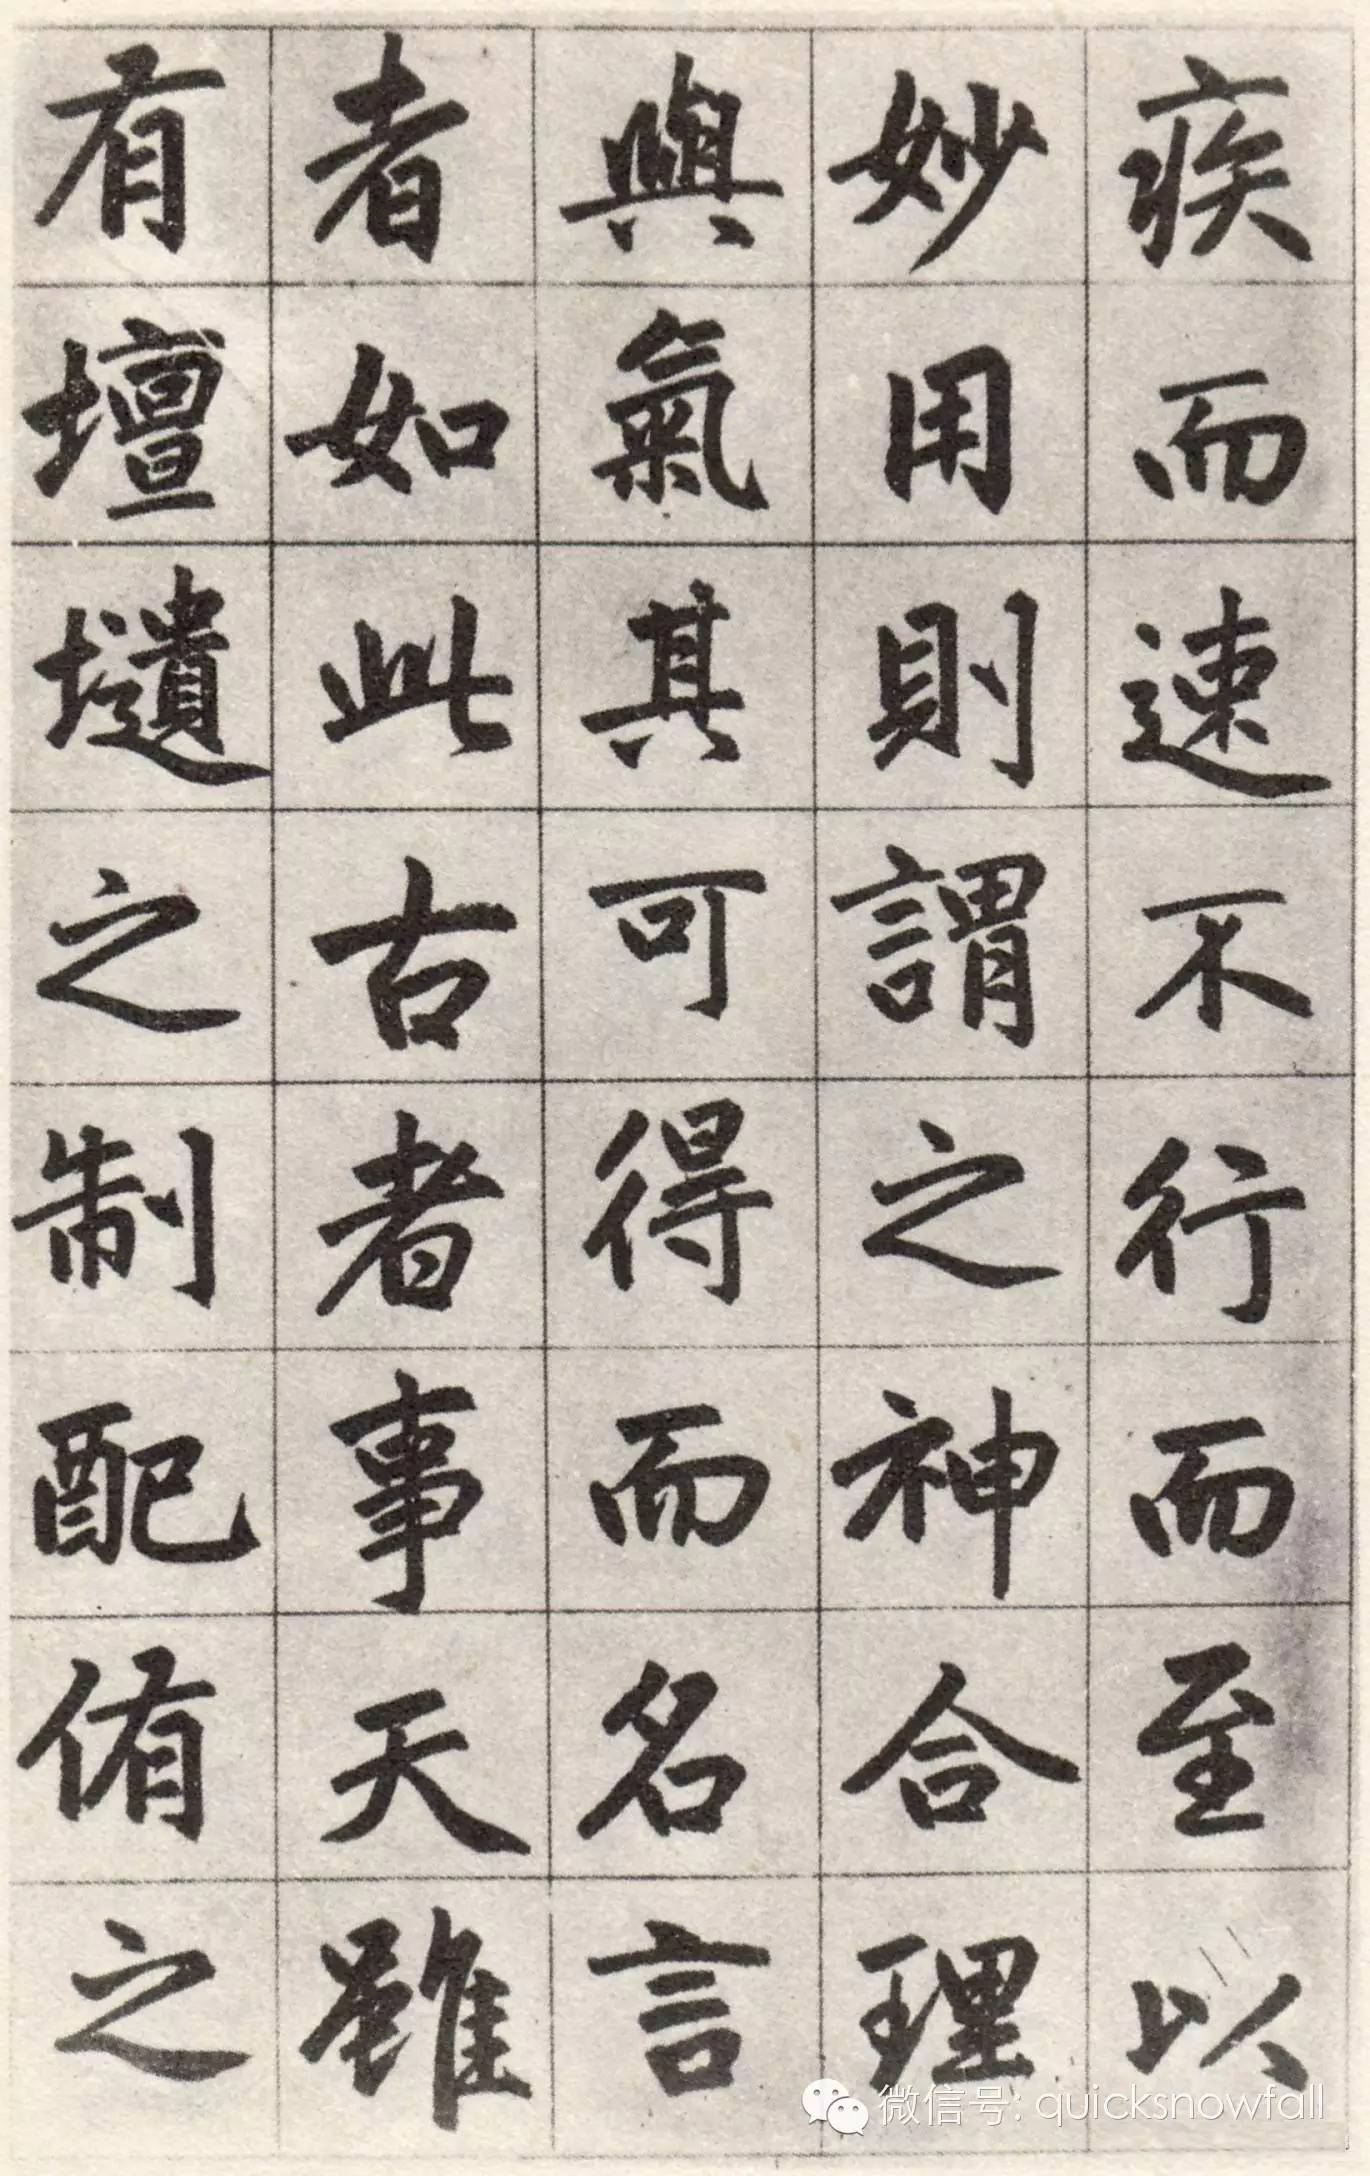 疾而速不行而至以
妙用則謂之神合理
與氣其可得而名言
者如此古者事天雖
有壇壝之制配侑之
微信号: quicksnowfall